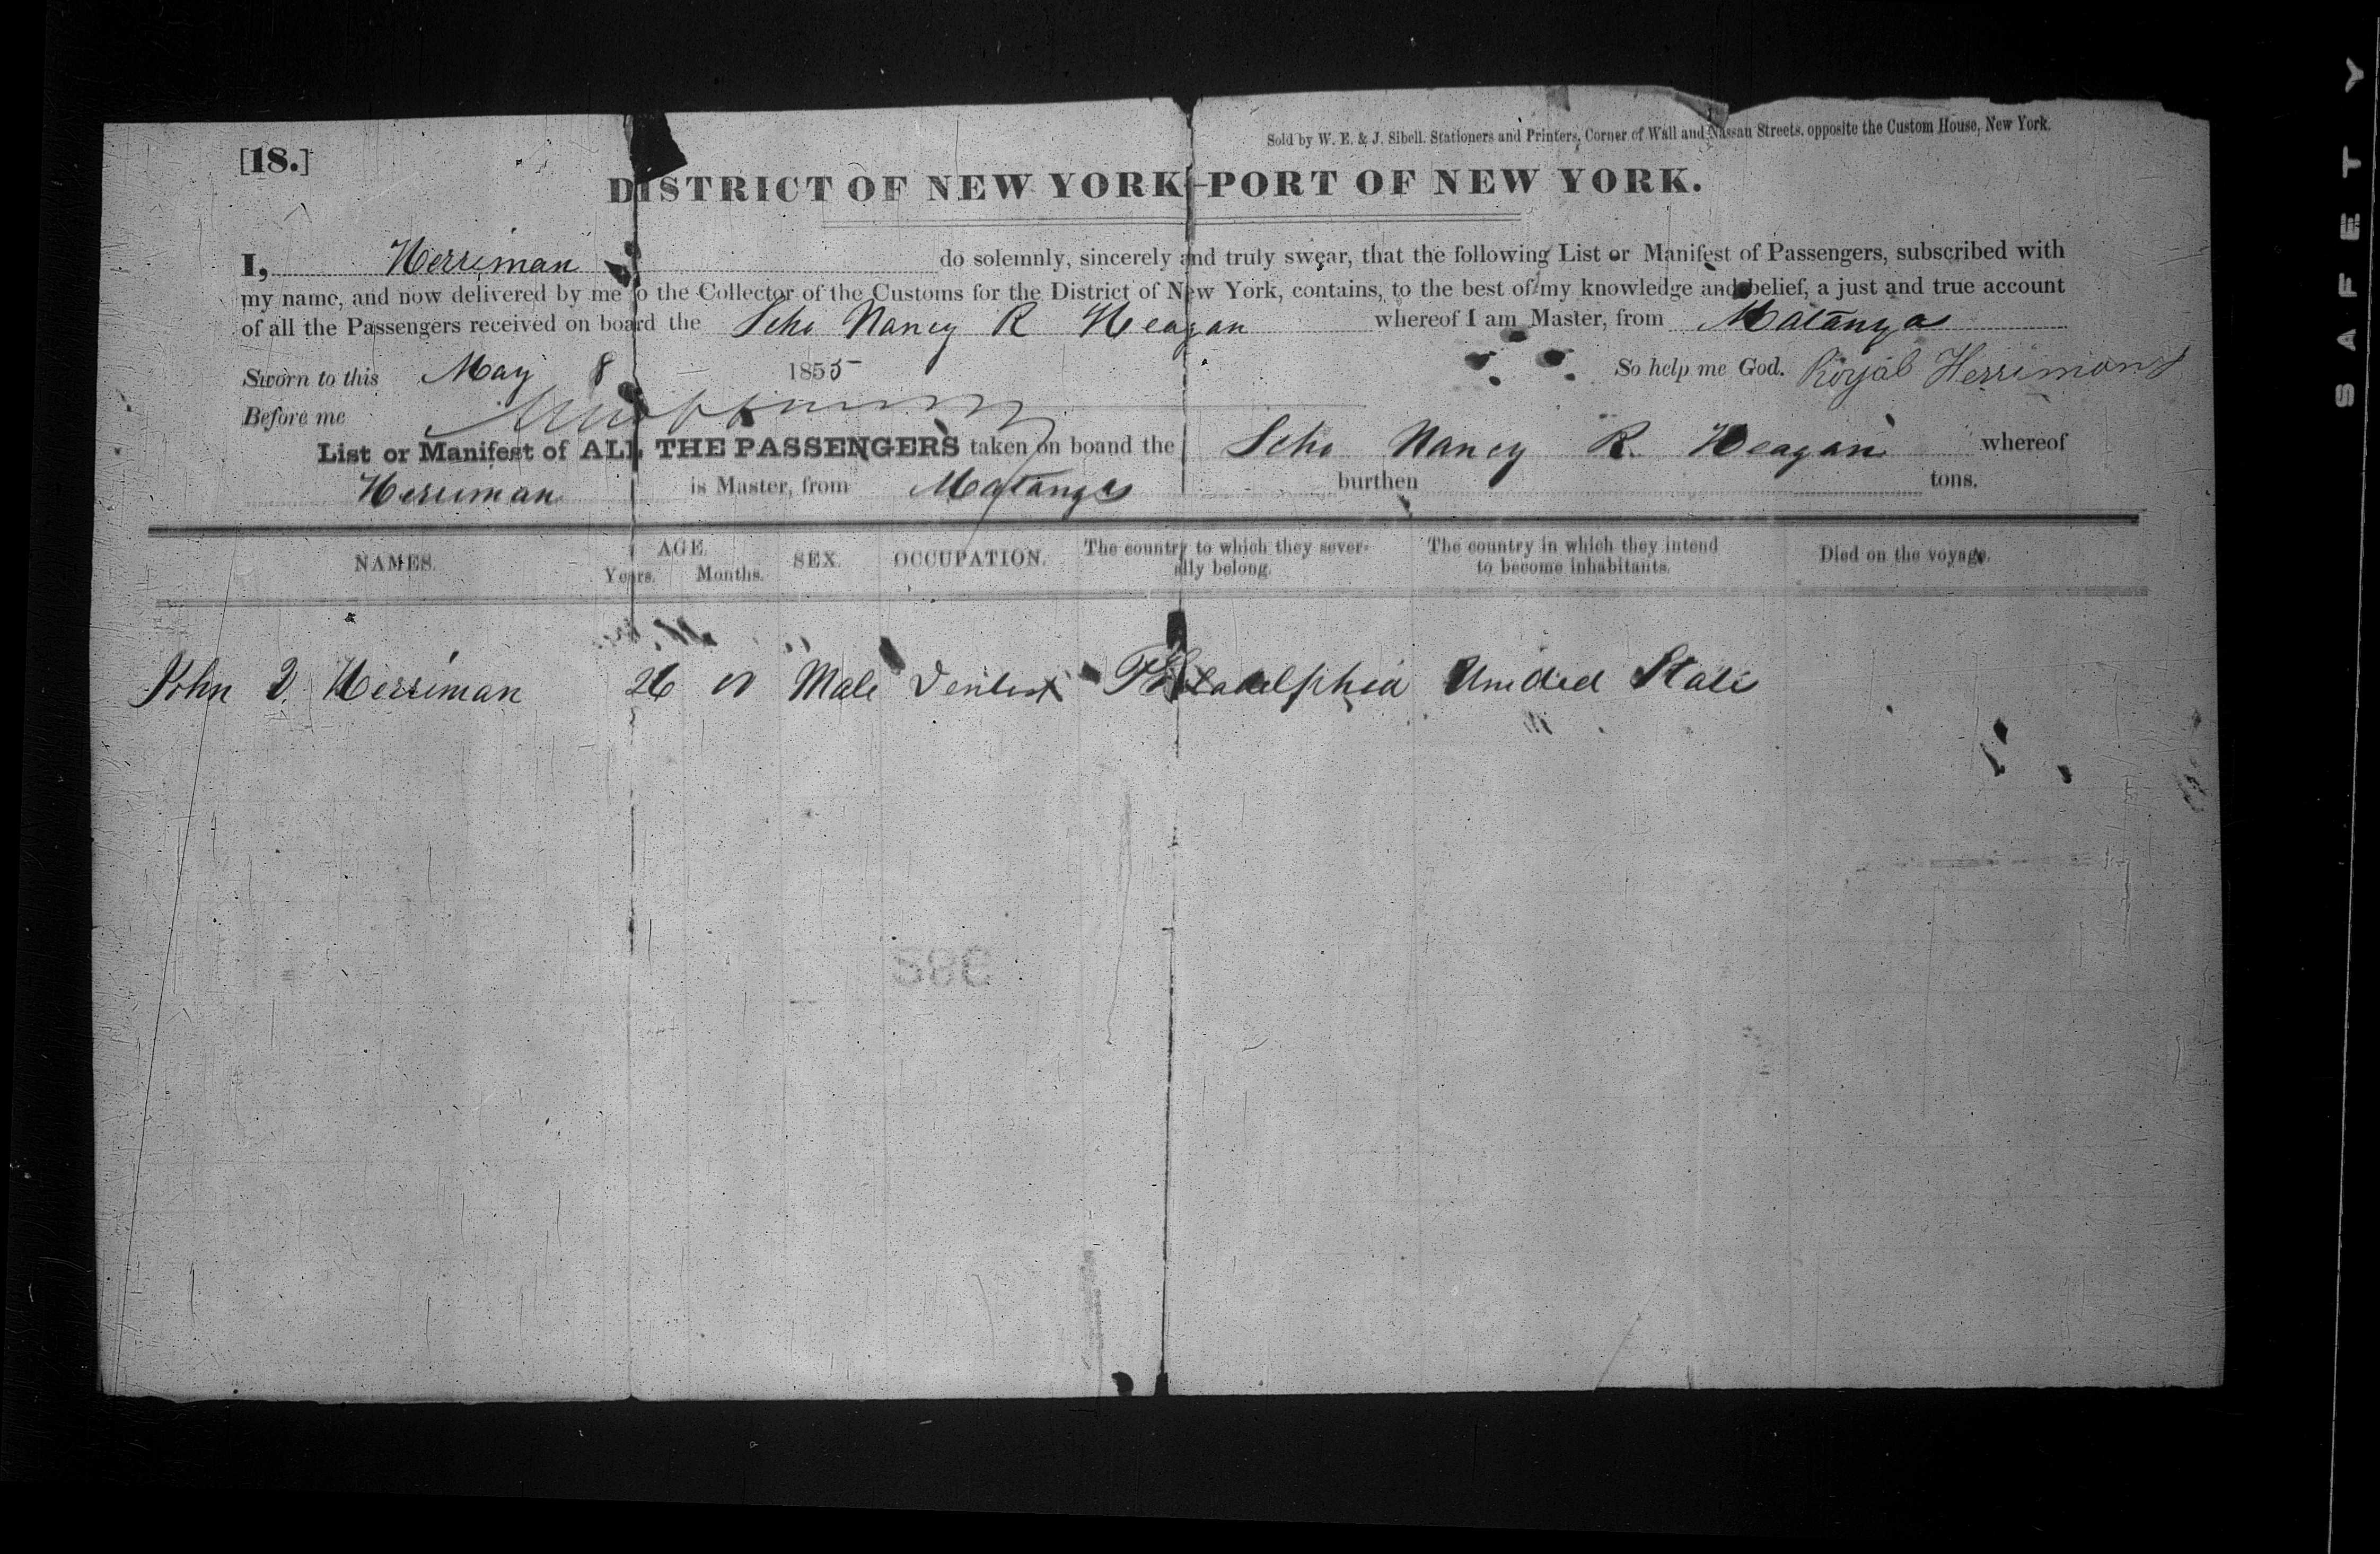 [18.]
Sold by W. E. & J. Sibell, Stationers and Printers, Corner of Wall and Nassau Streets, opposite the Custom House, New York.
DISTRICT OF NEW YORK—PORT OF NEW YORK.
I, Herriman do solemnly, sincerely and truly swear, that the following List or Manifest of Passengers, subscribed with
my name, and now delivered by me to the Collector of the Customs for the District of New York, contains, to the best of my knowledge and belief, a just and true account
of all the Passengers received on board the Schr Nancy R Heagan whereof I am Master, from Matanza
Sworn to this May 8 1855 So help me God. Royal Herriman
Before me
List or Manifest of ALL THE PASSENGERS taken on boand the Schr Nancy R. Heagan whereof
Herriman is Master, from Matanza burthen tons.
NAMES. AGE. Years. Months. SEX. OCCUPATION. The country to which they severally belong. The country in which they intend to become inhabitants. Died on the voyage.
John Herriman 26 Male Dentist Philadelphia United State
SAFETY